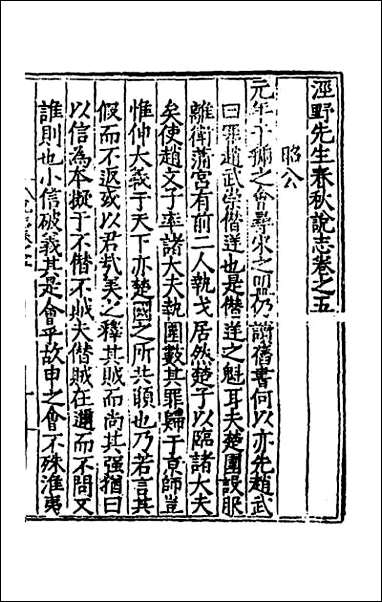 涇野先生春秋說志卷之五
昭公
元年于虢之會尋宋之盟仍讀舊書何以亦先趙武
曰張趙武崇僣逆也是僣逆之魁耳夫楚圍設服
離衛蒲宮有前二人執戈居然楚子以臨諸大夫
矣使趙文子率諸大夫執圍數其罪歸于京師豈
惟仲大義于天下亦楚國之所共頋也乃若言其
假而不返或以君㢤美之釋其賊而尚其强猶曰
以信為本擬于不僣不賊夫僣賊在邇而不問又
誰則也小信破義其是會乎故申之會不殊淮夷